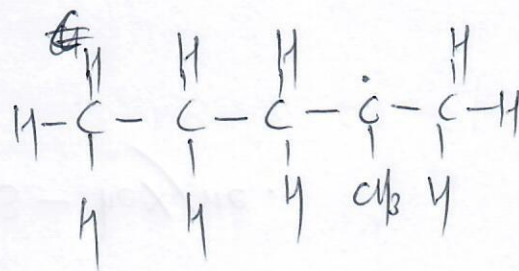 H H H H
H-C - C - C - Ċ - C-H
H H H CH3 H